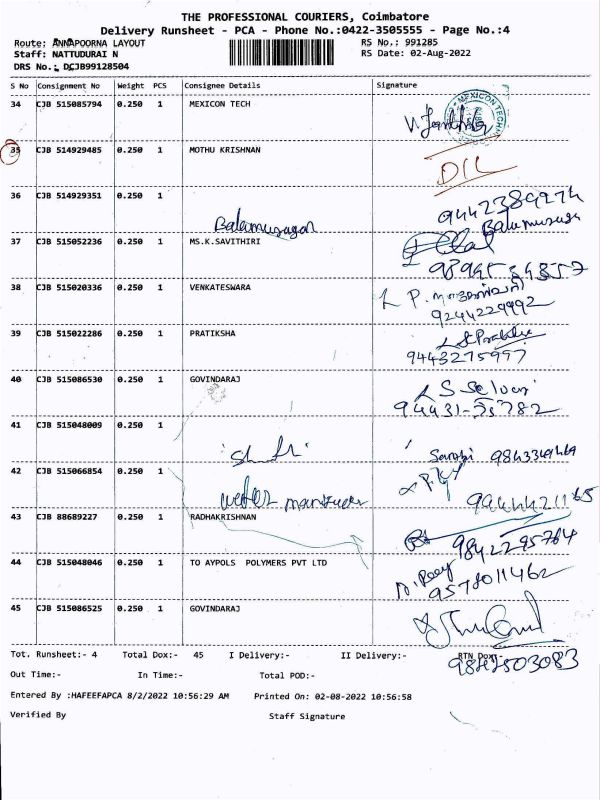 THE PROFESSIONAL COURIERS, Coimbatore
Delivery Runsheet - PCA - Phone No.:0422-3505555 - Page No.:4
Route: ANNAPOORNA LAYOUT RS No.: 991285
Staff: NATTUDURAI N RS Date: 02-Aug-2022
DRS No.: DCJB99128504
S No Consignment No Weight PCS Consignee Details Signature
34 CJB 515085794 0.250 1 MEXICON TECH
MEXICON TECH
35 CJB 514929485 0.250 1 MOTHU KRISHNAN
D/L
36 CJB 514929351 0.250 1
Balamurugan
9442389274
Balamuruga
37 CJB 515052236 0.250 1 MS.K.SAVITHIRI
38 CJB 515020336 0.250 1 VENKATESWARA
9244229992
39 CJB 515022286 0.250 1 PRATIKSHA
9443275997
40 CJB 515086530 0.250 1 GOVINDARAJ
S Selvari
41 CJB 515048009 0.250 1
42 CJB 515066854 0.250 1
43 CJB 88689227 0.250 1 RADHAKRISHNAN
9842295764
44 CJB 515048046 0.250 1 TO AYPOLS POLYMERS PVT LTD
9578011462
45 CJB 515086525 0.250 1 GOVINDARAJ
Tot. Runsheet:- 4 Total Dox:- 45 I Delivery:- II Delivery:- RTN Dox:-
Out Time:- In Time:- Total POD:-
Entered By :HAFEEFAPCA 8/2/2022 10:56:29 AM Printed On: 02-08-2022 10:56:58
Verified By Staff Signature